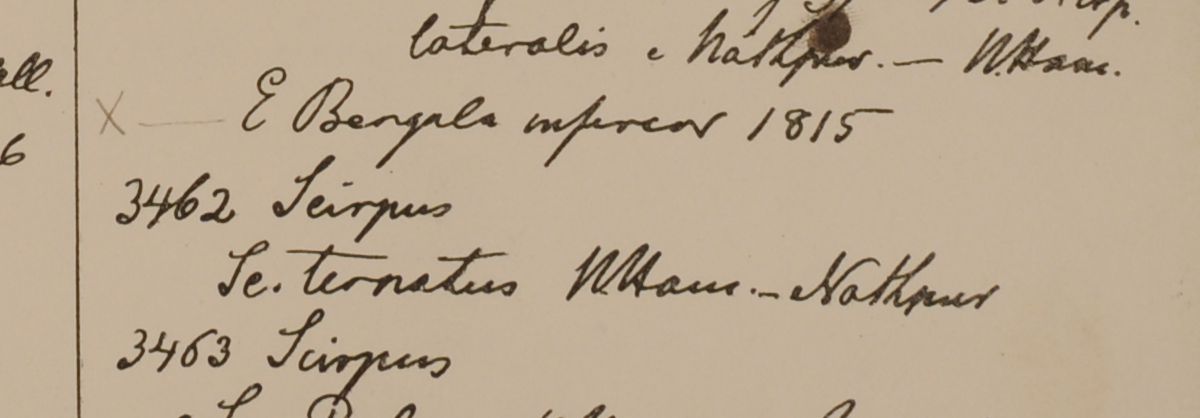 lateralis e Nathpur. — Wall.
all.
X — E Bengala inferior 1815
6
3462 Scirpus
Sc. ternatus Nathpur
3463 Scirpus